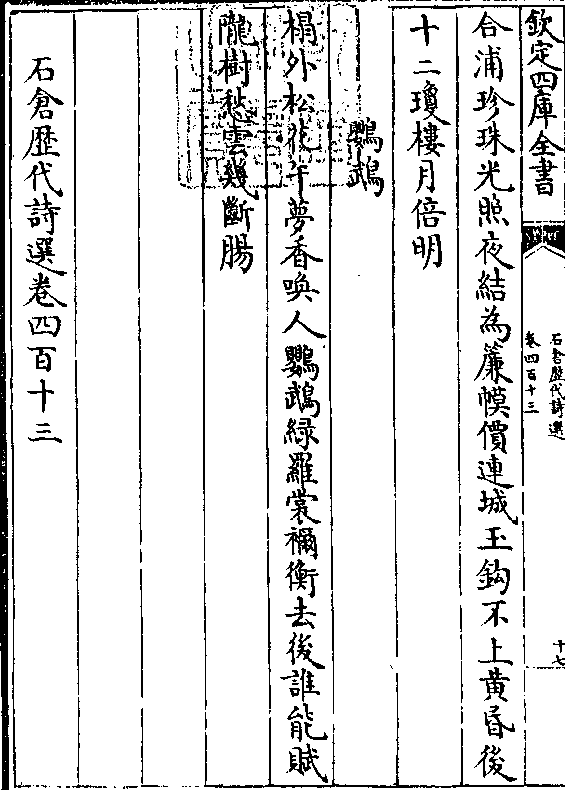 欽定四庫全書
石倉歴代詩選
卷四百十三
十七
合浦珍珠光照夜結為簾幙價連城玉鈎不上黄昏後
十二瓊樓月倍明
鸚鵡
榻外松花午夢香喚人鸚鵡緑羅裳禰衡去後誰能賦
隴樹愁雲幾斷腸
石倉歴代詩選卷四百十三